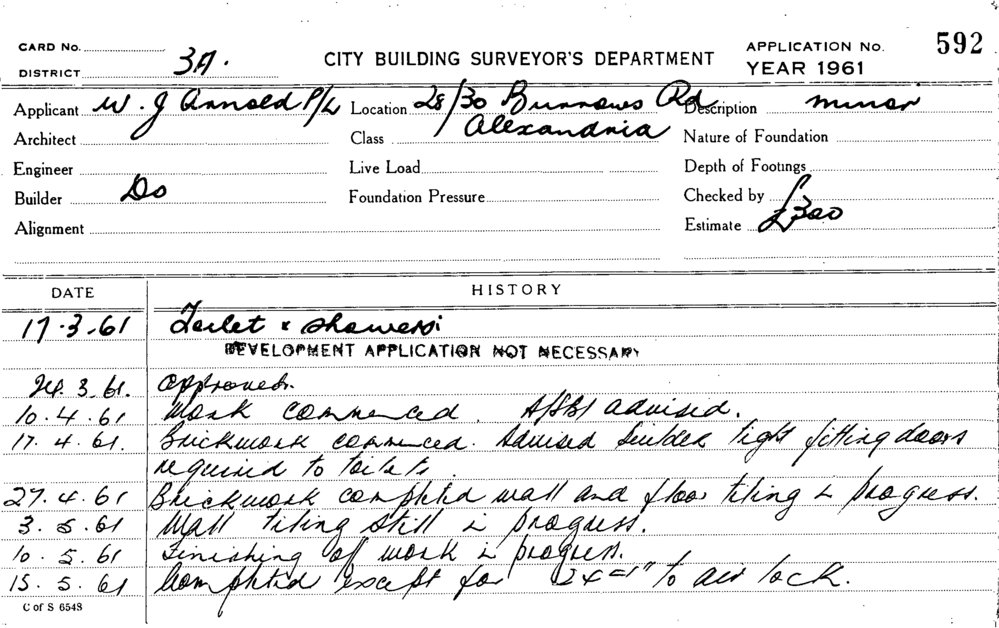 CARD No.
DISTRICT 3A.
CITY BUILDING SURVEYOR'S DEPARTMENT
APPLICATION No. 592
YEAR 1961
Applicant W. J Arnold P/L Location 28/30 Burrows Rd Description minor
Architect Class Alexandria Nature of Foundation
Engineer Live Load Depth of Footings
Builder Do Foundation Pressure Checked by
Alignment Estimate £300
DATE HISTORY
17.3.61 Toilet & showers
DEVELOPMENT APPLICATION NOT NECESSARY
24.3.61. approved.
10.4.61 Work commenced. advised.
17.4.61. Brickwork commenced. Advised builder tight fitting doors
required to toilets.
27.4.61 Brickwork completed wall and floor tiling in progress.
3.5.61 Wall tiling still in progress.
10.5.61 Finishing of work in progress.
15.5.61 Completed except for to air lock.
C of S 6548